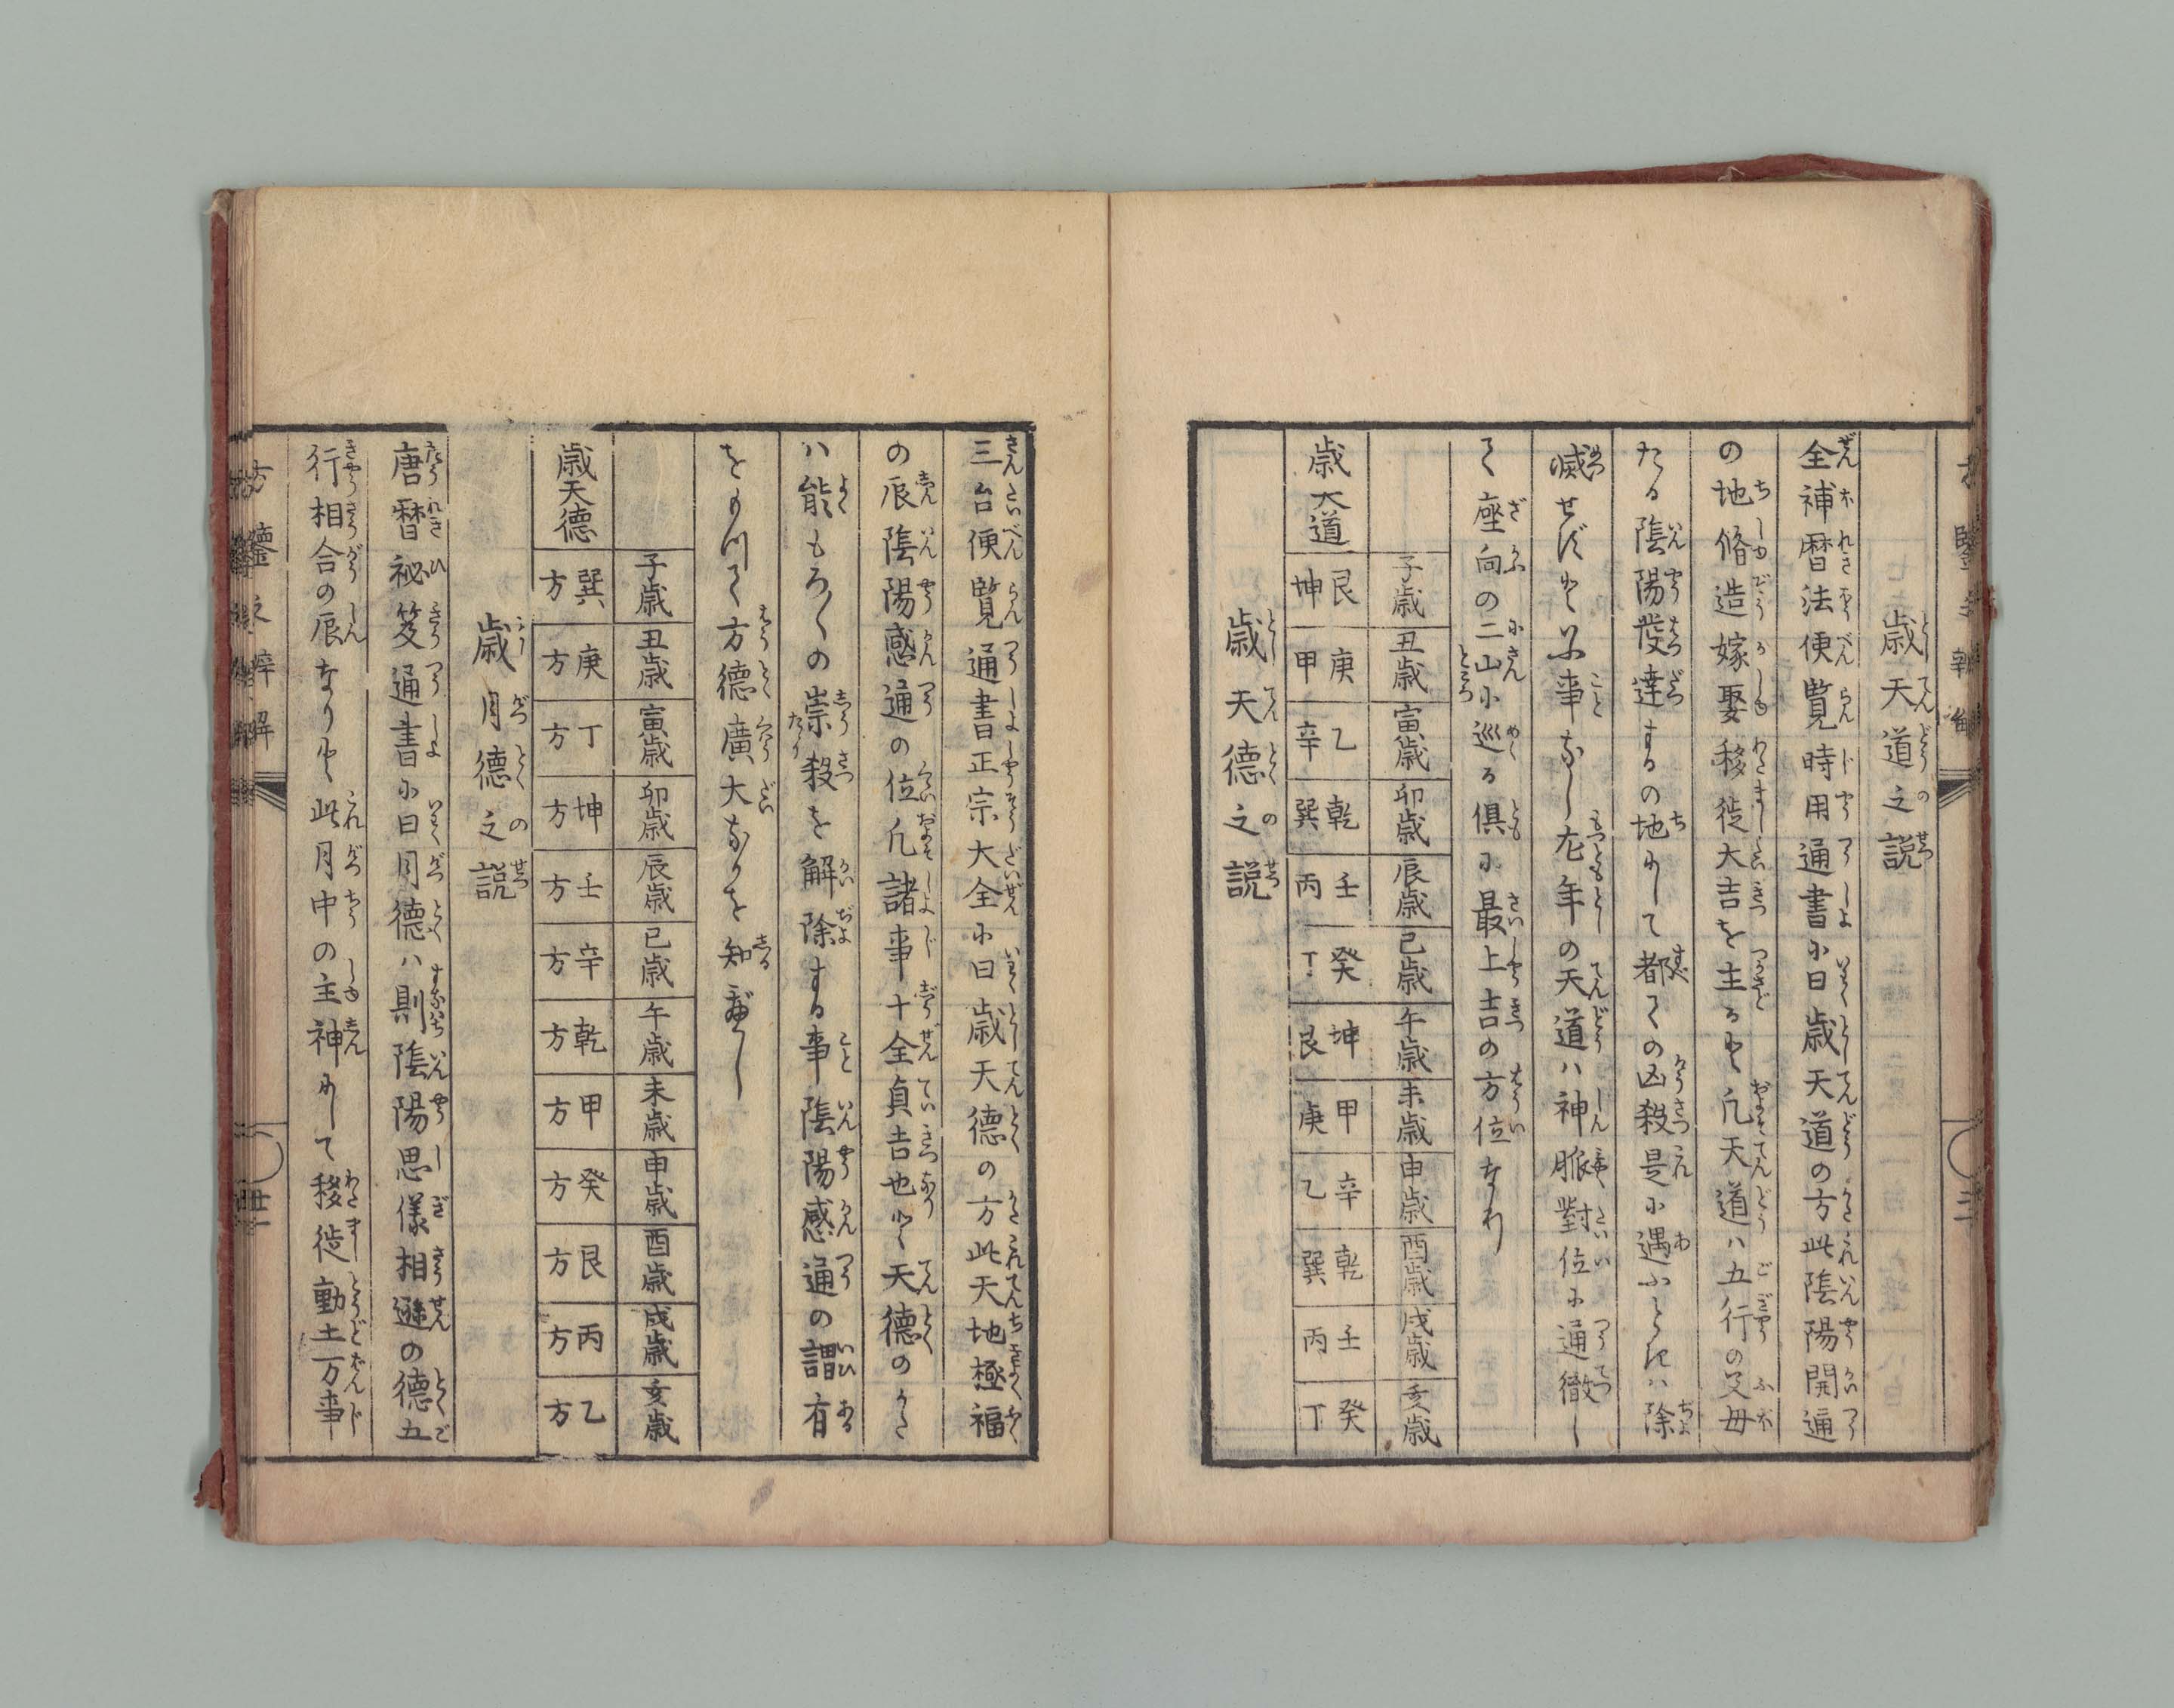 歳天道之説
全補暦法便覧時用通書ニ曰歳天道の方此陰陽開通
の地脩造嫁娶移徙大吉を主ると凡天道ハ五行の父母
たる陰陽發達するの地にして都ての凶殺是に遇ふときハ除
滅せずと云事なし尤年の天道ハ神脈對位に通徹し
て座向の二山に巡る倶に最上吉の方位なり
子歳 丑歳 寅歳 卯歳 辰歳 巳歳 午歳 未歳 申歳 酉歳 戌歳 亥歳
歳天道 艮坤 庚甲 乙辛 乾巽 壬丙 癸丁 坤艮 甲庚 辛乙 乾巽 壬丙 癸丁
歳天德之説
三台便覧通書正宗大全に曰歳天德の方此天地極福
の辰陰陽感通の位凡諸事十全貞吉也と天德のかた
ハ能もろ〳〵の崇殺を解除する事陰陽感通の謂有
をもつて方德廣大なるを知べし
子歳 丑歳 寅歳 卯歳 辰歳 巳歳 午歳 未歳 申歳 酉歳 戌歳 亥歳
歳天德 巽方 庚方 丁方 坤方 壬方 辛方 乾方 甲方 癸方 艮方 丙方 乙方
歳月德之説
唐暦祕笈通書に曰月德ハ則陰陽思儀相遜の德五
行相合の辰なりと此月中の主神にして移徙動土万事